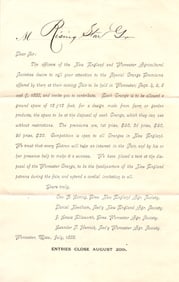 M Rising Star Gr.
Dear Sir:
The officers of the New England and Worcester Agricultural
Societies desire to call your attention to the Special Grange Premiums
offered by them at their coming Fair to be held at Worcester, Sept. 4, 5, 6
and 7, 1888, and invite you to contribute. Each Grange is to be allowed a
ground space of 12x12 feet, for a design made from farm or garden
products, the space to be at the disposal of each Grange, which they can use
without restrictions. The premiums are, 1st prize, $50, 2d prize, $30,
3d prize, $20. Competition is open to all Granges in New England.
We trust that every Patron will take an interest in the Fair, and by his or
her presence help to make it a success. We have placed a tent at the dis-
posal of the Worcester Grange, to be the headquarters of the New England
Patrons during the fair and extend a cordial invitation to all.
Yours truly,
Geo. B. Loring, Pres. New England Agri. Society,
Daniel Needham, Sec'y New England Agri. Society,
J. Lewis Ellsworth, Pres. Wor. Agri. Society,
Worcester, Mass., July, 1888.
ENTRIES CLOSE AUGUST 20th.